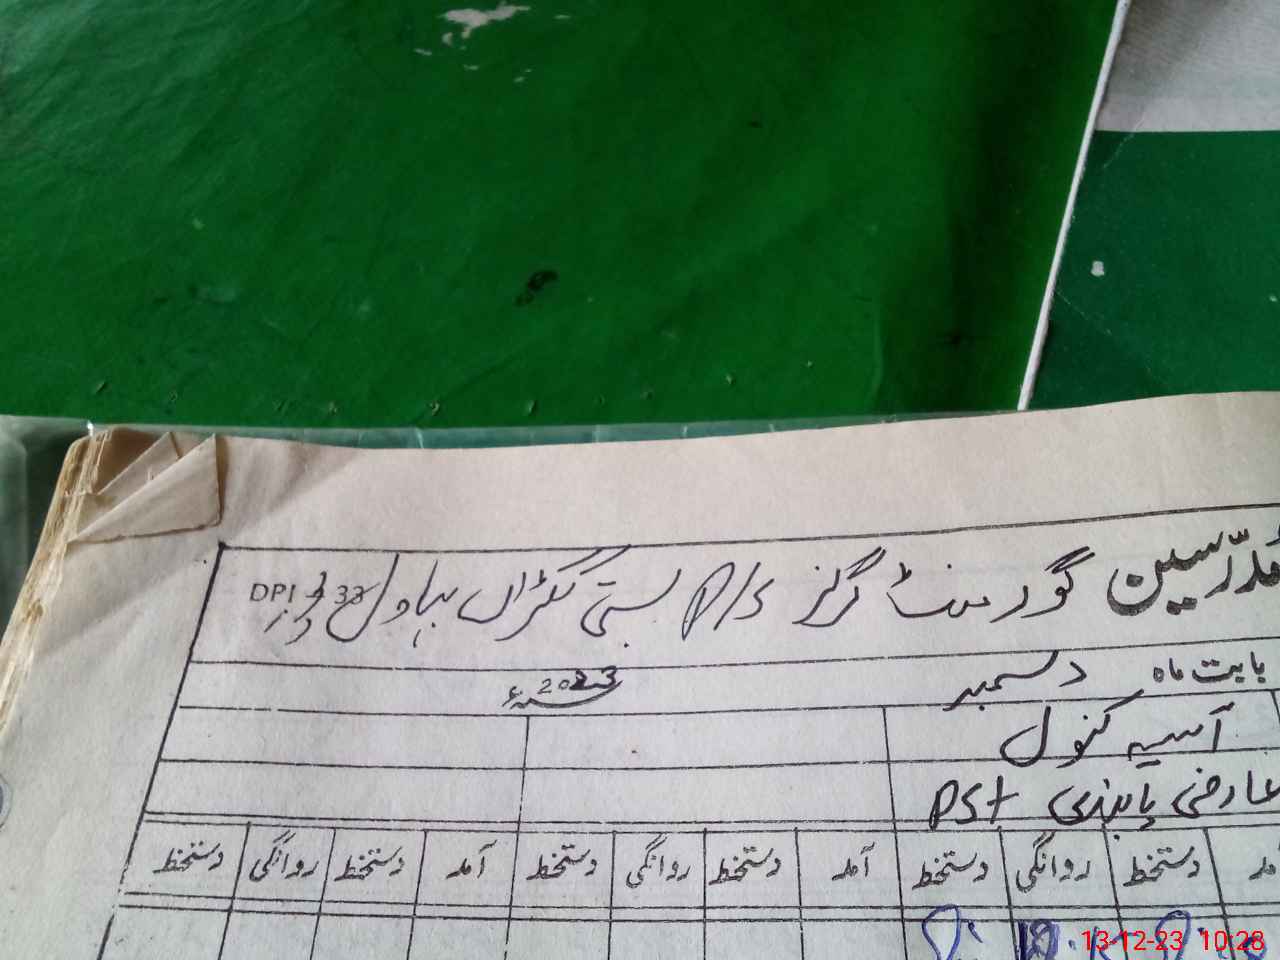 مدرّسین گورمنٹ گرلز P/S بستی ککڑاں بہاول DPI 33
بابت ماہ دسمبر 2023ء
آسیہ کنول
عارضی پابندی PST
آمد دستخط روانگی دستخط آمد دستخط روانگی دستخط آمد دستخط روانگی دستخط
13-12-23 10:28